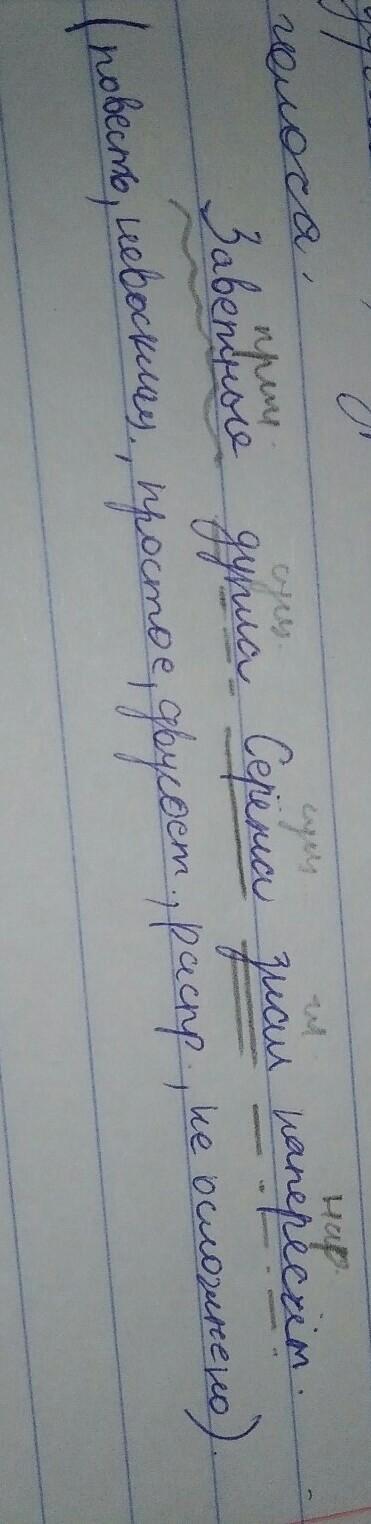 голоса.
прил. сущ. сущ. гл. нар.
Заветные дупла Серёжа знал наперечёт.
(повеств, невосклиц., простое, двусост., распр., не осложнено).